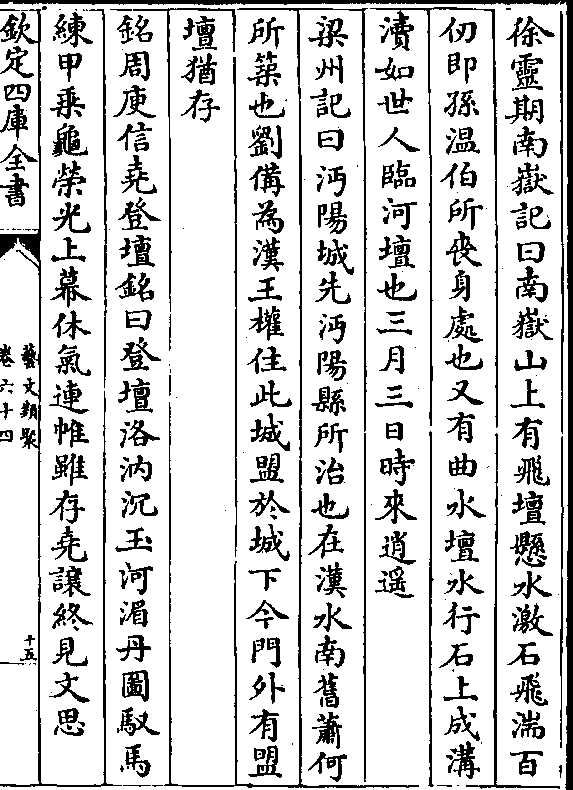 徐靈期南嶽記曰南嶽山上有飛壇懸水激石飛湍百
仞即孫温伯所喪身處也又有曲水壇水行石上成溝
瀆如世人臨河壇也三月三日時來逍遥
梁州記曰沔陽城先沔陽縣所治也在漢水南舊蕭何
所築也劉備為漢王權住此城盟於城下今門外有盟
壇猶存
銘周庾信堯登壇銘曰登壇洛汭沉玉河湄丹圖馭馬
練甲乗龜榮光上幕休氣連帷雖存堯讓終見文思
欽定四庫全書
藝文類聚
卷六十四
十五